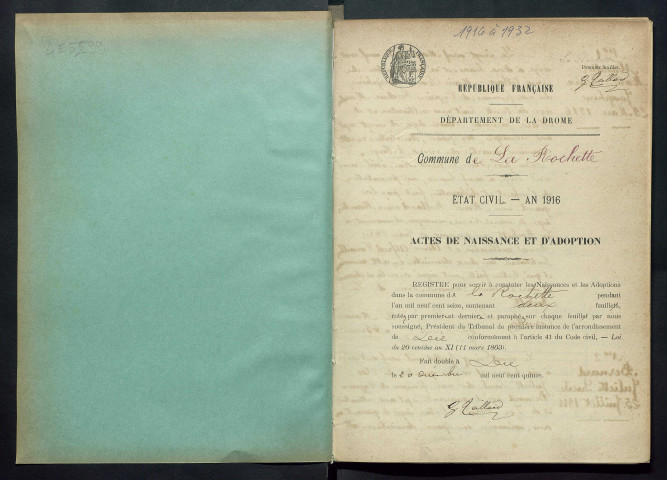 1916 à 1932
Premier feuillet
G Tallard
RÉPUBLIQUE FRANÇAISE
DÉPARTEMENT DE LA DROME
Commune de La Rochette
ETAT CIVIL — AN 1916
ACTES DE NAISSANCE ET D'ADOPTION
REGISTRE pour servir à constater les Naissances et les Adoptions
dans la commune de la Rochette pendant
l'an mil neuf cent seize, contenant deux feuillets,
cotés par premier et dernier et paraphés sur chaque feuillet par nous
soussigné, Président du Tribunal de première instance de l'arrondissement
de Die conformément à l'article 41 du Code civil, — Loi
du 20 ventôse an XI (11 mars 1803).
Fait double à Die
le 20 décembre mil neuf cent quinze.
G Tallard